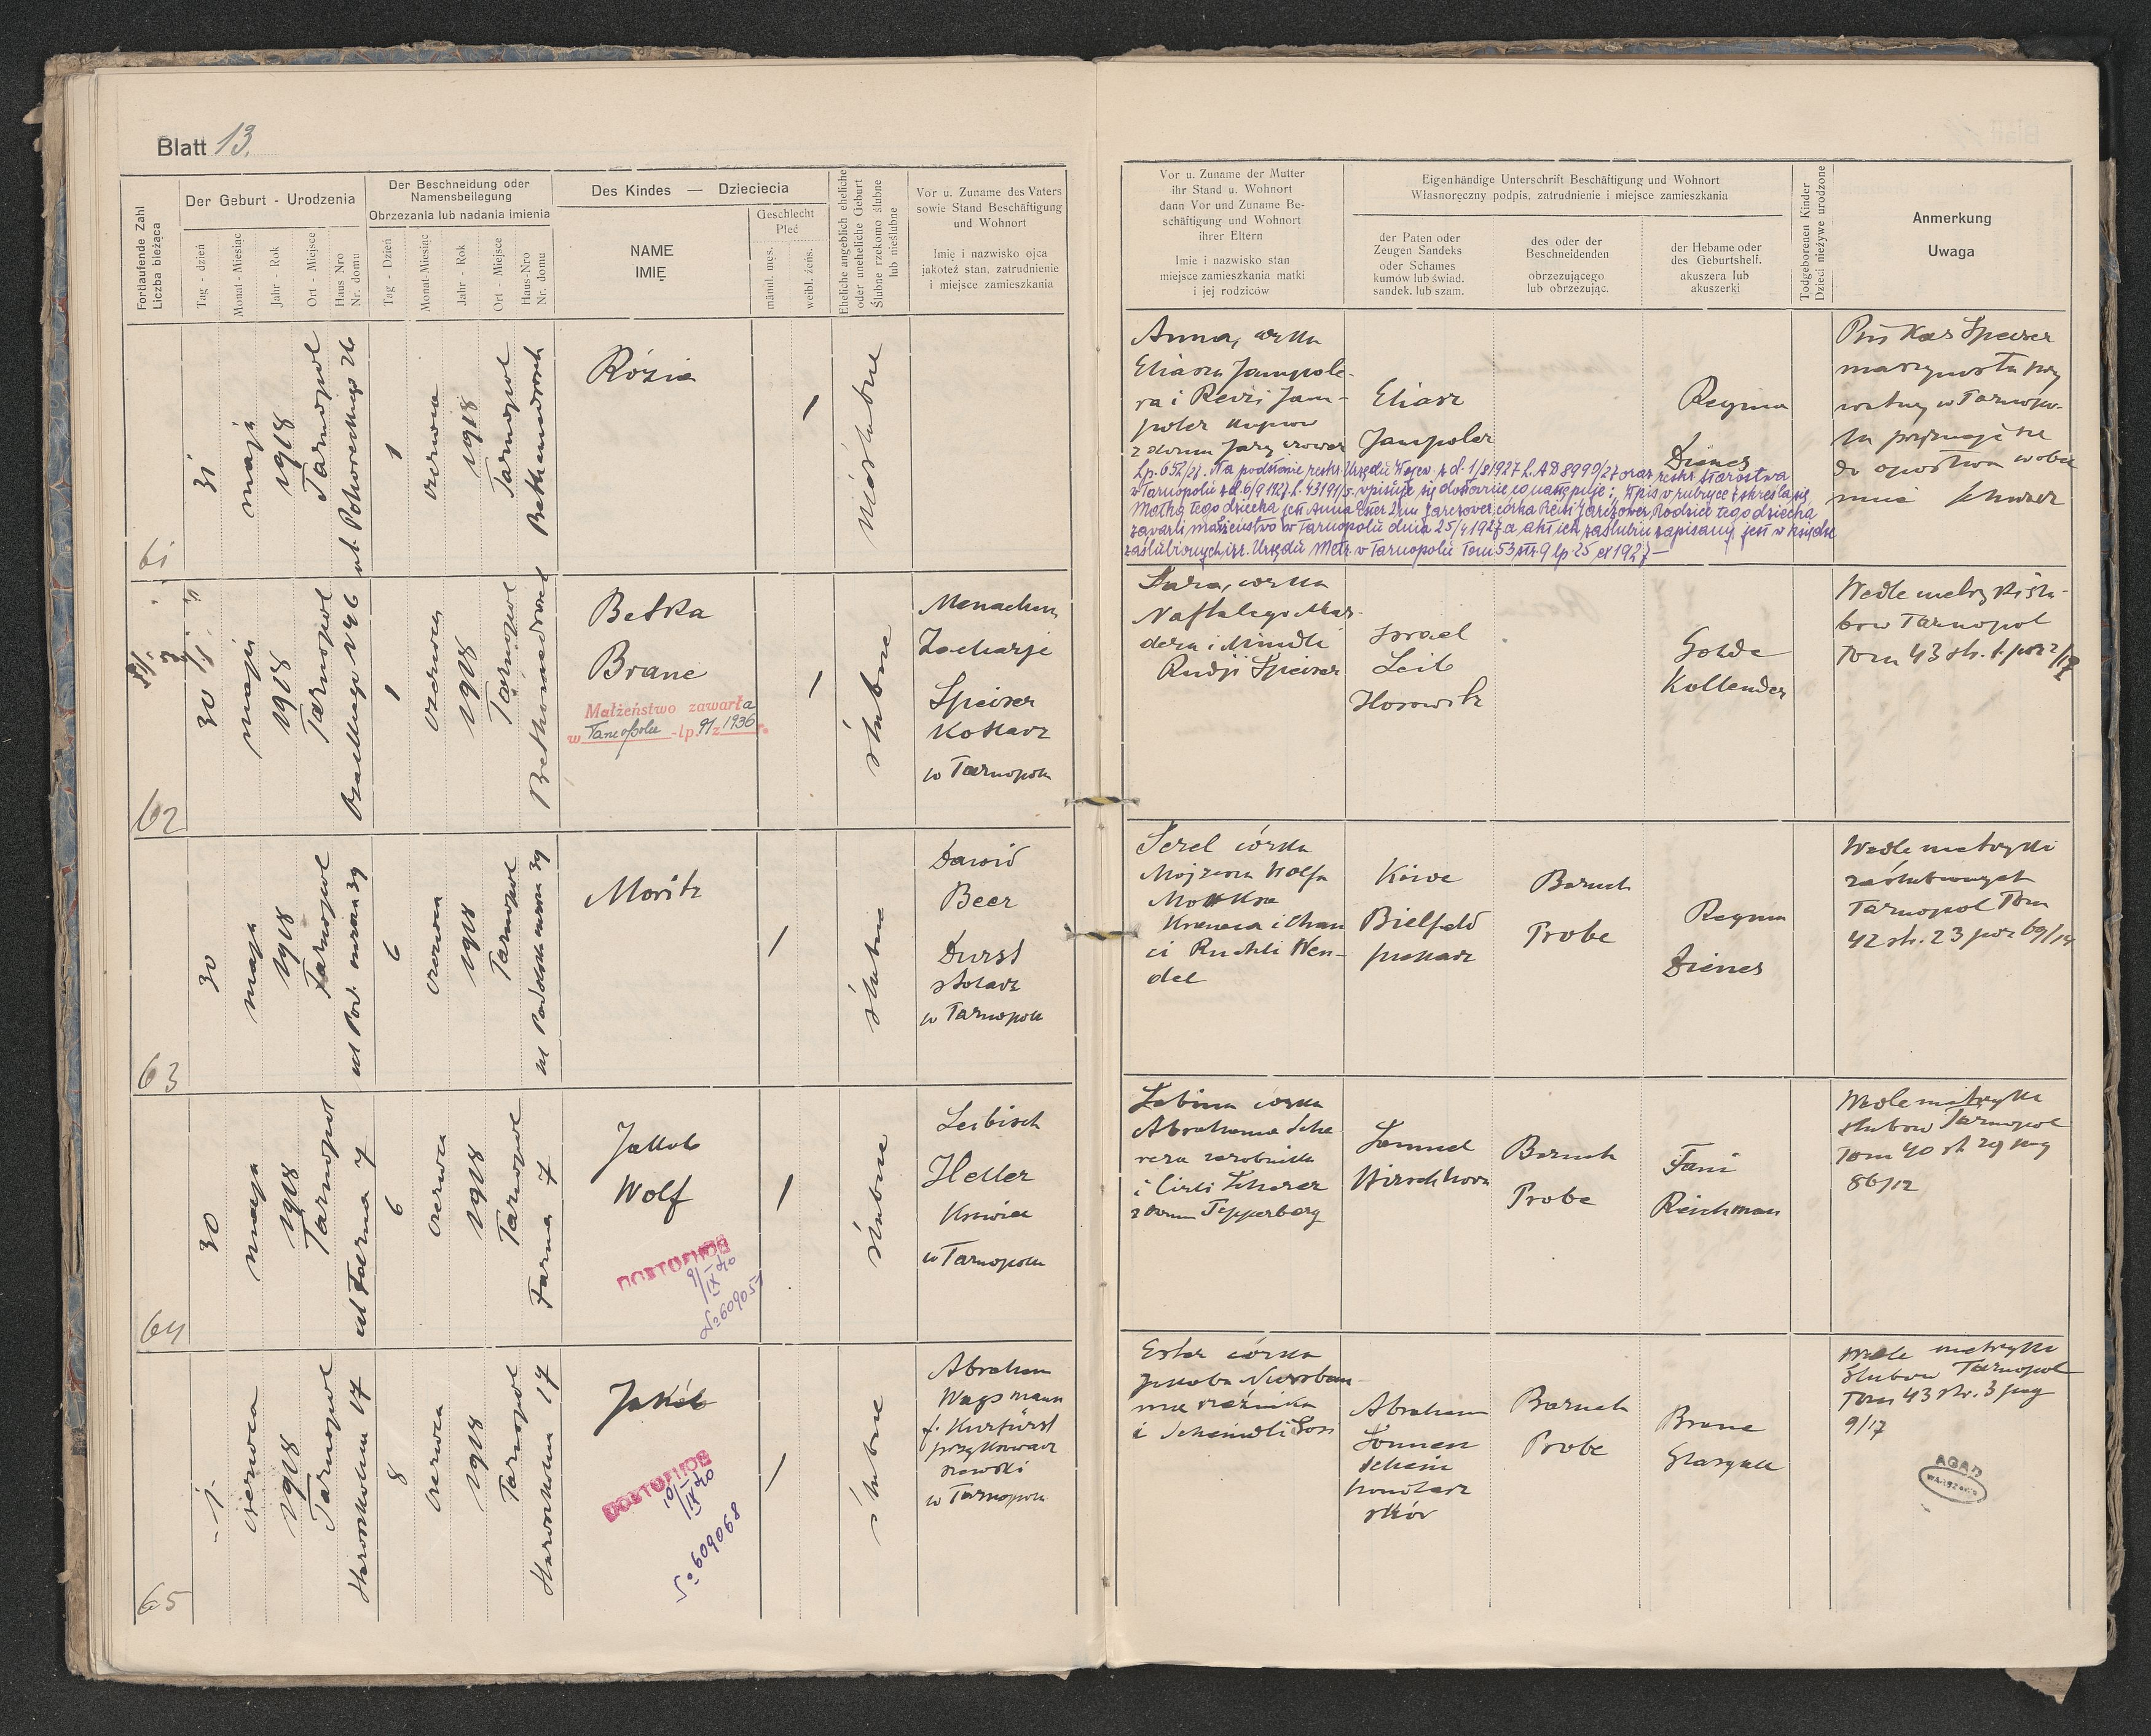 Blatt 13.
Fortlaufende Zahl
Liczba bieżąca
Der Geburt - Urodzenia
Tag - dzień
Monat - Miesiąc
Jahr - Rok
Ort - Miejsce
Haus Nro
Nr. domu
Der Beschneidung oder
Namensbeilegung
Obrzezania lub nadania imienia
Tag - Dzień
Monat-Miesiąc
Jahr - Rok
Ort - Miejsce
Haus-Nro
Nr. domu
Des Kindes — Dzieciecia
NAME
IMIĘ
Geschlecht
Płeć
männl. męs.
weibl. żeńs.
Eheliche angeblich eheliche
oder uneheliche Geburt
Ślubne rzekomo ślubne
lub nieślubne
Vor u. Zuname des Vaters
sowie Stand Beschäftigung
und Wohnort
Imię i nazwisko ojca
jakoteż stan, zatrudnienie
i miejsce zamieszkania
Vor u. Zuname der Mutter
ihr Stand u. Wohnort
dann Vor und Zuname Be-
schäftigung und Wohnort
ihrer Eltern
Imie i nazwisko stan
miejsce zamieszkania matki
i jej rodziców
Eigenhändige Unterschrift Beschäftigung und Wohnort
Własnoręczny podpis, zatrudnienie i miejsce zamieszkania
der Paten oder
Zeugen Sandeks
oder Schames
kumów lub świad.
sandek. lub szam.
des oder der
Beschneidenden
obrzezującego
lub obrzezując.
der Hebame oder
des Geburtshelf.
akuszera lub
akuszerki
Todgeborenen Kinder
Dzieci nieżywe urodzone
Anmerkung
Uwaga
61
31
maja
1918
Tarnopol
1
czerwca
1918
Tarnopol
Rózia
1
nieślubne
Anna, córka
Eliasza Jampole-
ra i Reizi Jam-
poler
Eliasz
Jampoler
Regina
Dienes
Lp. 652/27. Na podstawie reskr. Urzędu Wojew. z d. 1/8 1927 L. AD 8999/27 oraz reskr. Starostwa
w Tarnopolu z d. 6/9 1927. L. 43191/5. wpisuje się dosłownie, co następuje: "Wpis w rubryce 7 skreśla się
Matką tego dziecka jest Anna Ester 2 im. Jarczower, córka Reizi Jarczower, Rodzice tego dziecka
zawarli małżeństwo w Tarnopolu dnia 25/4 1927 a akt ich zaślubin zapisany jest w księdze
zaślubionych izr. Urzędu Metr. w Tarnopolu Tom 53 str. 9 lp. 25 ex 1927 —
62
30
maja
1918
Tarnopol
1
czerwca
1918
Tarnopol
Betka
Brane
Małżeństwo zawarła
w Tarnopolu - lp. 91 z 1936 r.
1
ślubne
Menachem
Zacharje
Speiser
w Tarnopolu
Sara, córka
Naftalego Mar-
dera i Mindli
Rudji Speiser
Israel
Leib
Horowitz
Golde
Kollender
Wedle metryki ślu-
bów Tarnopol
Tom 43 str. 1. poz 2/17
63
30
maja
1918
Tarnopol
6
czerwca
1918
Tarnopol
Moritz
1
ślubne
Dawid
Beer
Durst
stolarz
w Tarnopolu
Serel córka
Mojżesza Wolfa
Kiwe
Bielfeld
Baruch
Probe
Regina
Dienes
Wedle metryki
zaślubionych
Tarnopol Tom
42 str. 23 poz 69/14
64
30
maja
1918
Tarnopol
ul Farna 7
6
czerwca
1918
Tarnopol
Farna 7
Jakob
Wolf
ПОВТОРНОЕ
9/IX 40
№ 609057
1
ślubne
Leibisch
Heller
Krawiec
w Tarnopolu
Sabina córka
Abrahama Sche
rera zarobnika
i Cirli Scherer
z domu Tepperberg
Samuel
Hirschhorn
Baruch
Probe
Fani
Reichman
Wedle metryki
ślubów Tarnopol
Tom 40 st 29 poz
86/12
65
1
czerwca
1918
Tarnopol
8
czerwca
1918
Tarnopol
Jakób
ПОВТОРНОЕ
10/IX 40
№ 609068
1
ślubne
Abraham
Wagsmann
f. Kurfürst
w Tarnopolu
Ester córka
Jakoba Nussbau-
ma rzeźnika
i Scheindli Soss
Abraham
Sonnen
schein
handlarz
skór
Baruch
Probe
Brane
Wedle metryki
ślubów Tarnopol
Tom 43 str. 3 poz
9/17
AGAD
WARSZAWA